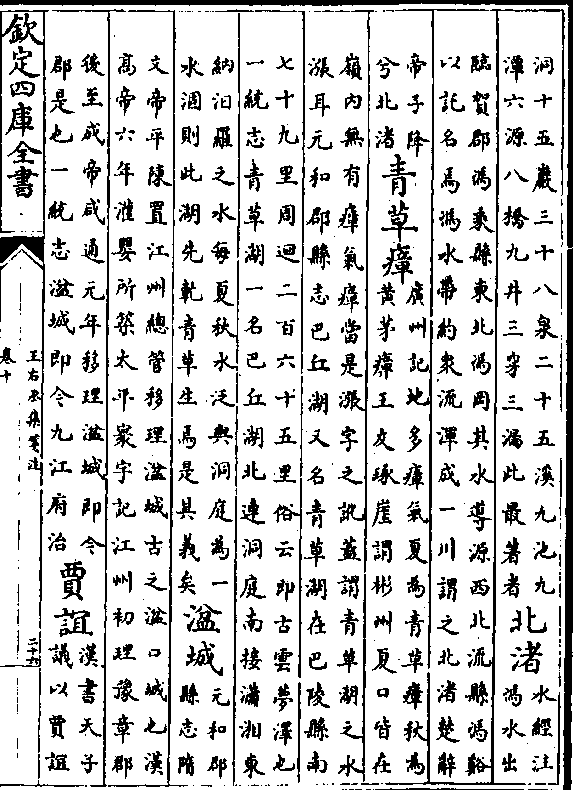 洞十五巖三十八泉二十五溪九池九
潭六源八橋九井三穿三漏此最著者
北渚
水經注
馮水出
臨賀郡馮乘縣東北馮岡其水導源西北流縣馮谿
以託名焉馮水帶約衆流渾成一川謂之北渚楚辭
帝子降
兮北渚
青草瘴
廣州記地多瘴氣夏為青草瘴秋為
黃茅瘴王友琢崖謂彬州夏口皆在
嶺内無有瘴氣瘴當是漲字之訛蓋謂青草湖之水
漲耳元和郡縣志巴丘湖又名青草湖在巴陵縣南
七十九里周迴二百六十五里俗云即古雲夢澤也
一統志青草湖一名巴丘湖北連洞庭南接瀟湘東
納汨羅之水每夏秋水泛與洞庭為一
水涸則此湖先乾青草生焉是其義矣
湓城
元和郡
縣志隋
文帝平陳置江州總管移理湓城古之湓口城也漢
高帝六年灌嬰所築太平寰宇記江州初理豫章郡
後至成帝咸通元年移理湓城即今
郡是也一統志湓城即今九江府治
賈誼
漢書天子
議以賈誼
欽定四庫全書
王右丞集箋注
卷十
二十六